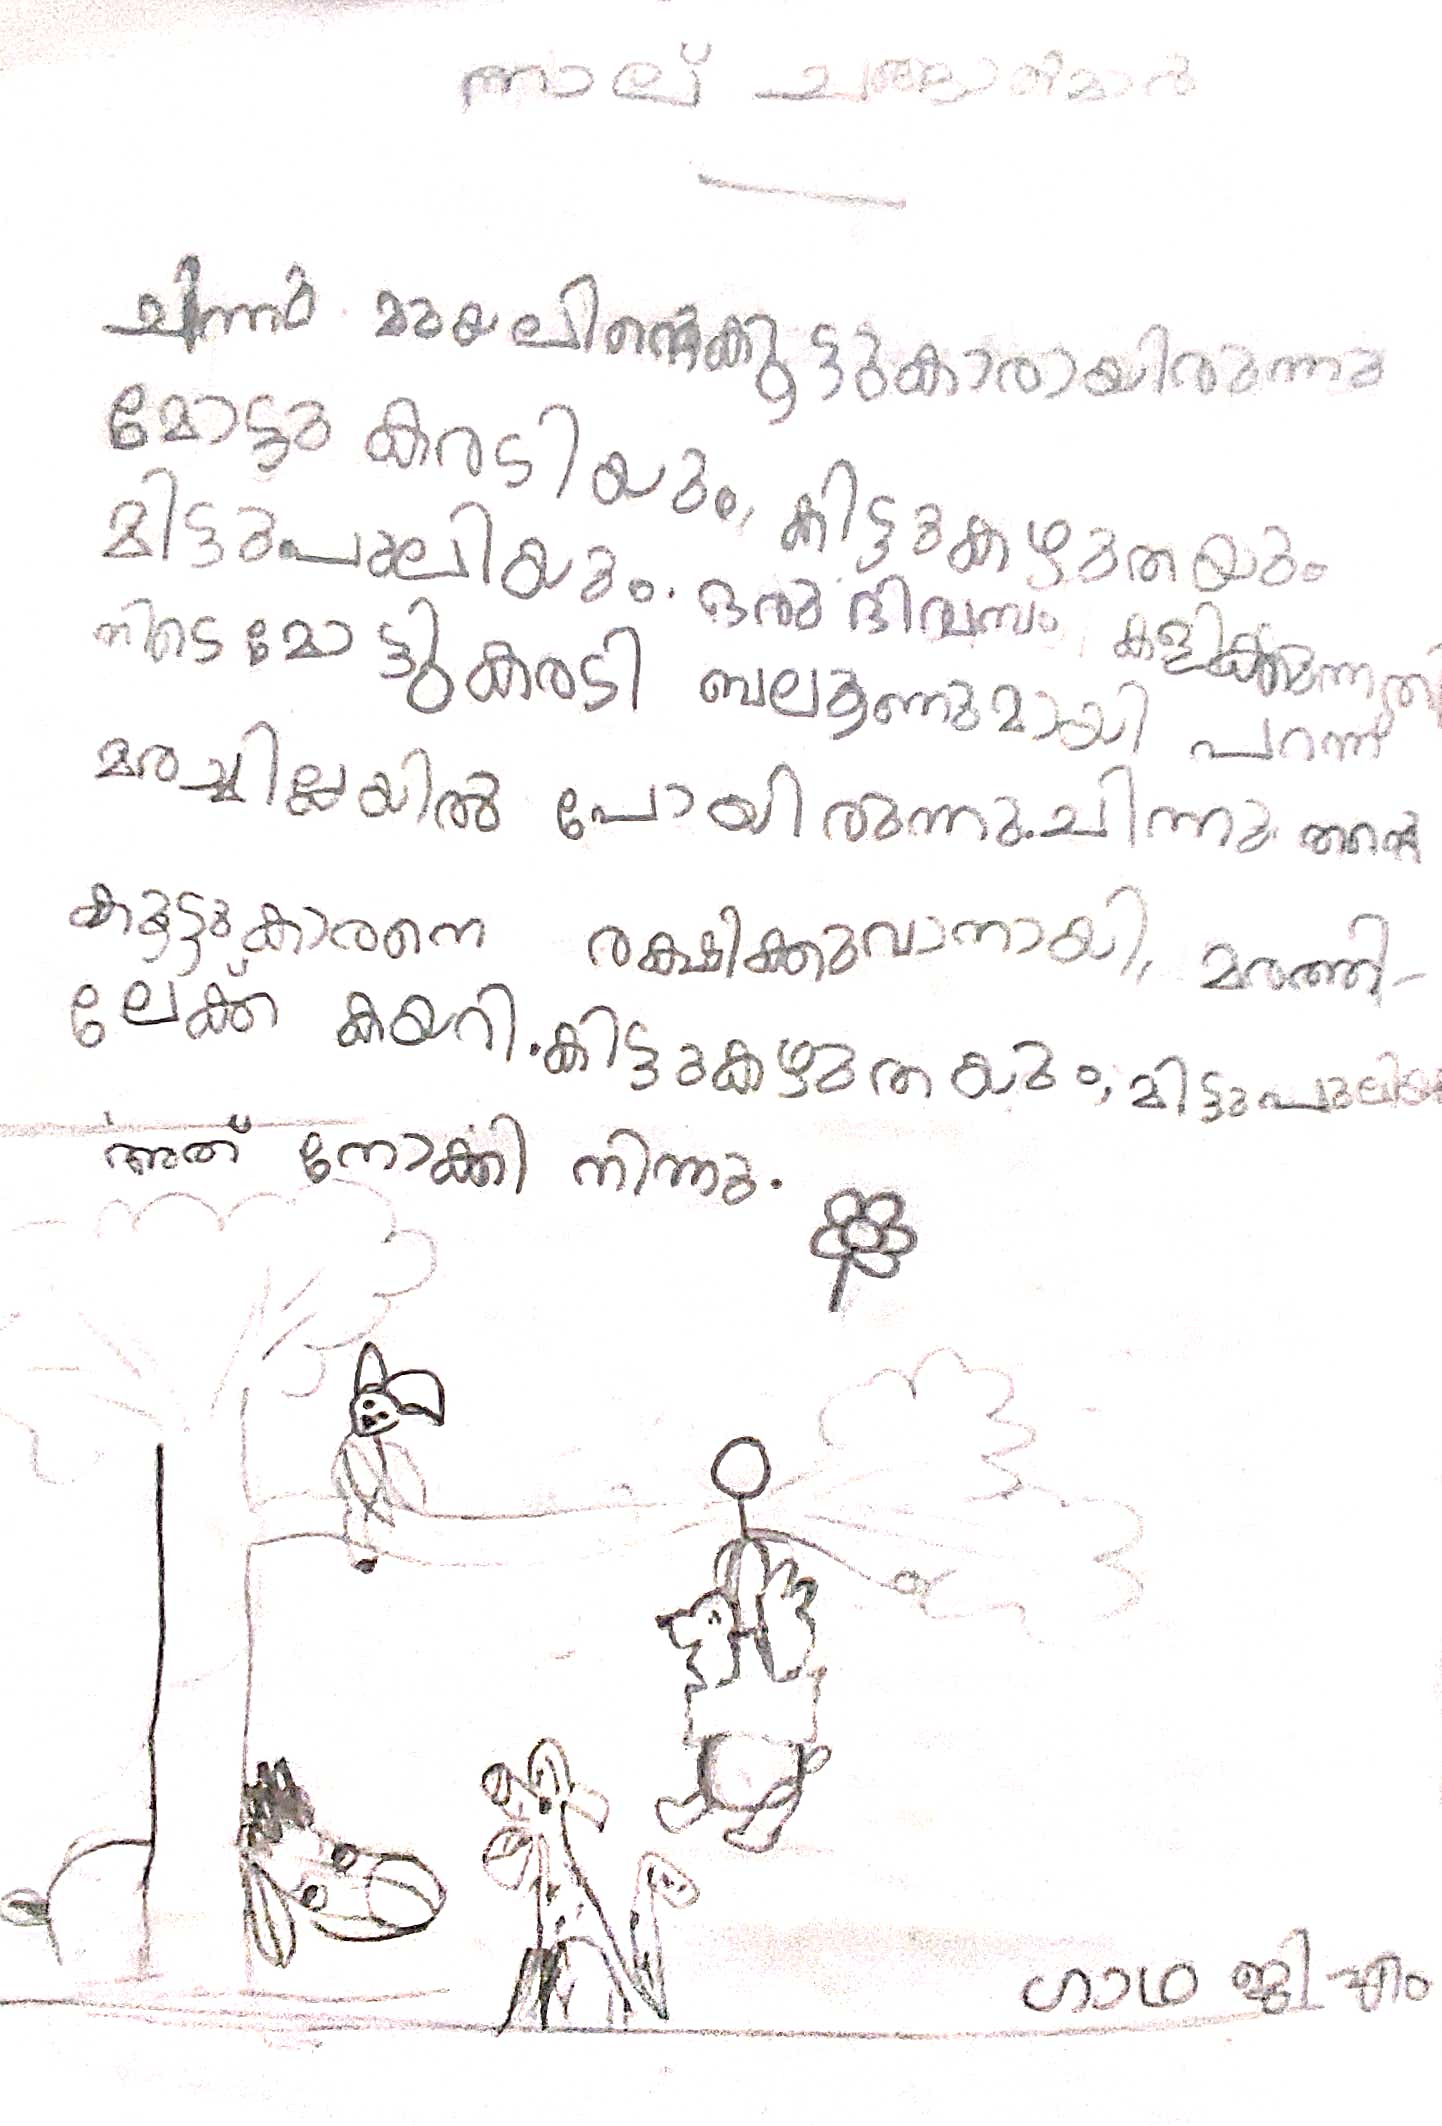 നാല് ചങ്ങാതിമാർ
ചിന്നു മുയലിന്റെ കൂട്ടുകാരായിരുന്നു
മോട്ടു കരടിയും, കിട്ടുകഴുതയും
മിട്ടുപുലിയും. ഒരു ദിവസം കളിക്കുന്നതി
നിടെ മോട്ടുകരടി ബലൂണുമായി പറന്ന്
മരച്ചില്ലയിൽ പോയിരുന്നു. ചിന്നു തന്റെ
കൂട്ടുകാരനെ രക്ഷിക്കുവാനായി, മരത്തി-
ലേക്ക് കയറി. കിട്ടുകഴുതയും, മിട്ടുപുലിയും
അത് നോക്കി നിന്നു.
ഗാഥ ജി എം